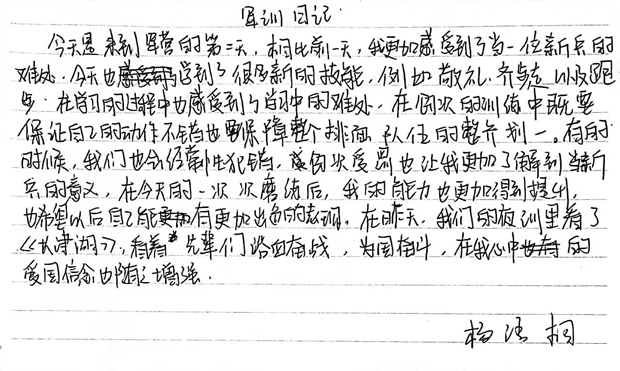 军训日记
今天是来到军营的第二天，相比前一天，我更加感受到了当一位新兵的
难处。今天也学到了很多新的技能，例如敬礼、齐步走以及跑
步。在学习的过程中也感受到了学习中的难处，在每次的训练中既要
保证自己的动作不错也要保障整个排面队伍的整齐划一。有的
时候，我们也会经常性犯错，每次受罚也让我更加了解到当新
兵的意义，在今天的一次次磨练后，我的能力也更加得到提升，
也希望以后自己能有更加出色的表现。在昨天，我们的夜训里看了
《长津湖》，看着先辈们浴血奋战，为国奋斗，在我心中的
爱国信念也随之增强。
杨 桐